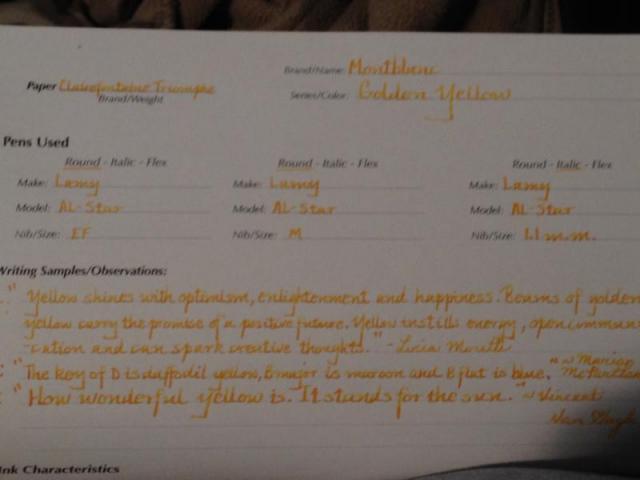 Brand/Name: Montblanc
Paper Clairefontaine Triomphe
Brand/Weight
Series/Color: Golden Yellow
Pens Used
Round - Italic - Flex
Round - Italic - Flex
Round - Italic - Flex
Make: Lamy
Make: Lamy
Make: Lamy
Model: AL-Star
Model: AL-Star
Model: AL-Star
Nib/Size: EF
Nib/Size: M
Nib/Size: 1.1 m.m.
Writing Samples/Observations:
" Yellow shines with optimism, enlightenment and happiness. Beams of golden
yellow carry the promise of a positive future. Yellow instills energy, open commun
-cation and can spark creative thoughts." - Lucia Moretti
: "The key of D is daffodil yellow, B major is maroon and B flat is blue." ~ Marian
McPartland
: "How wonderful yellow is. It stands for the sun." ~ Vincent
Van Gogh
Ink Characteristics